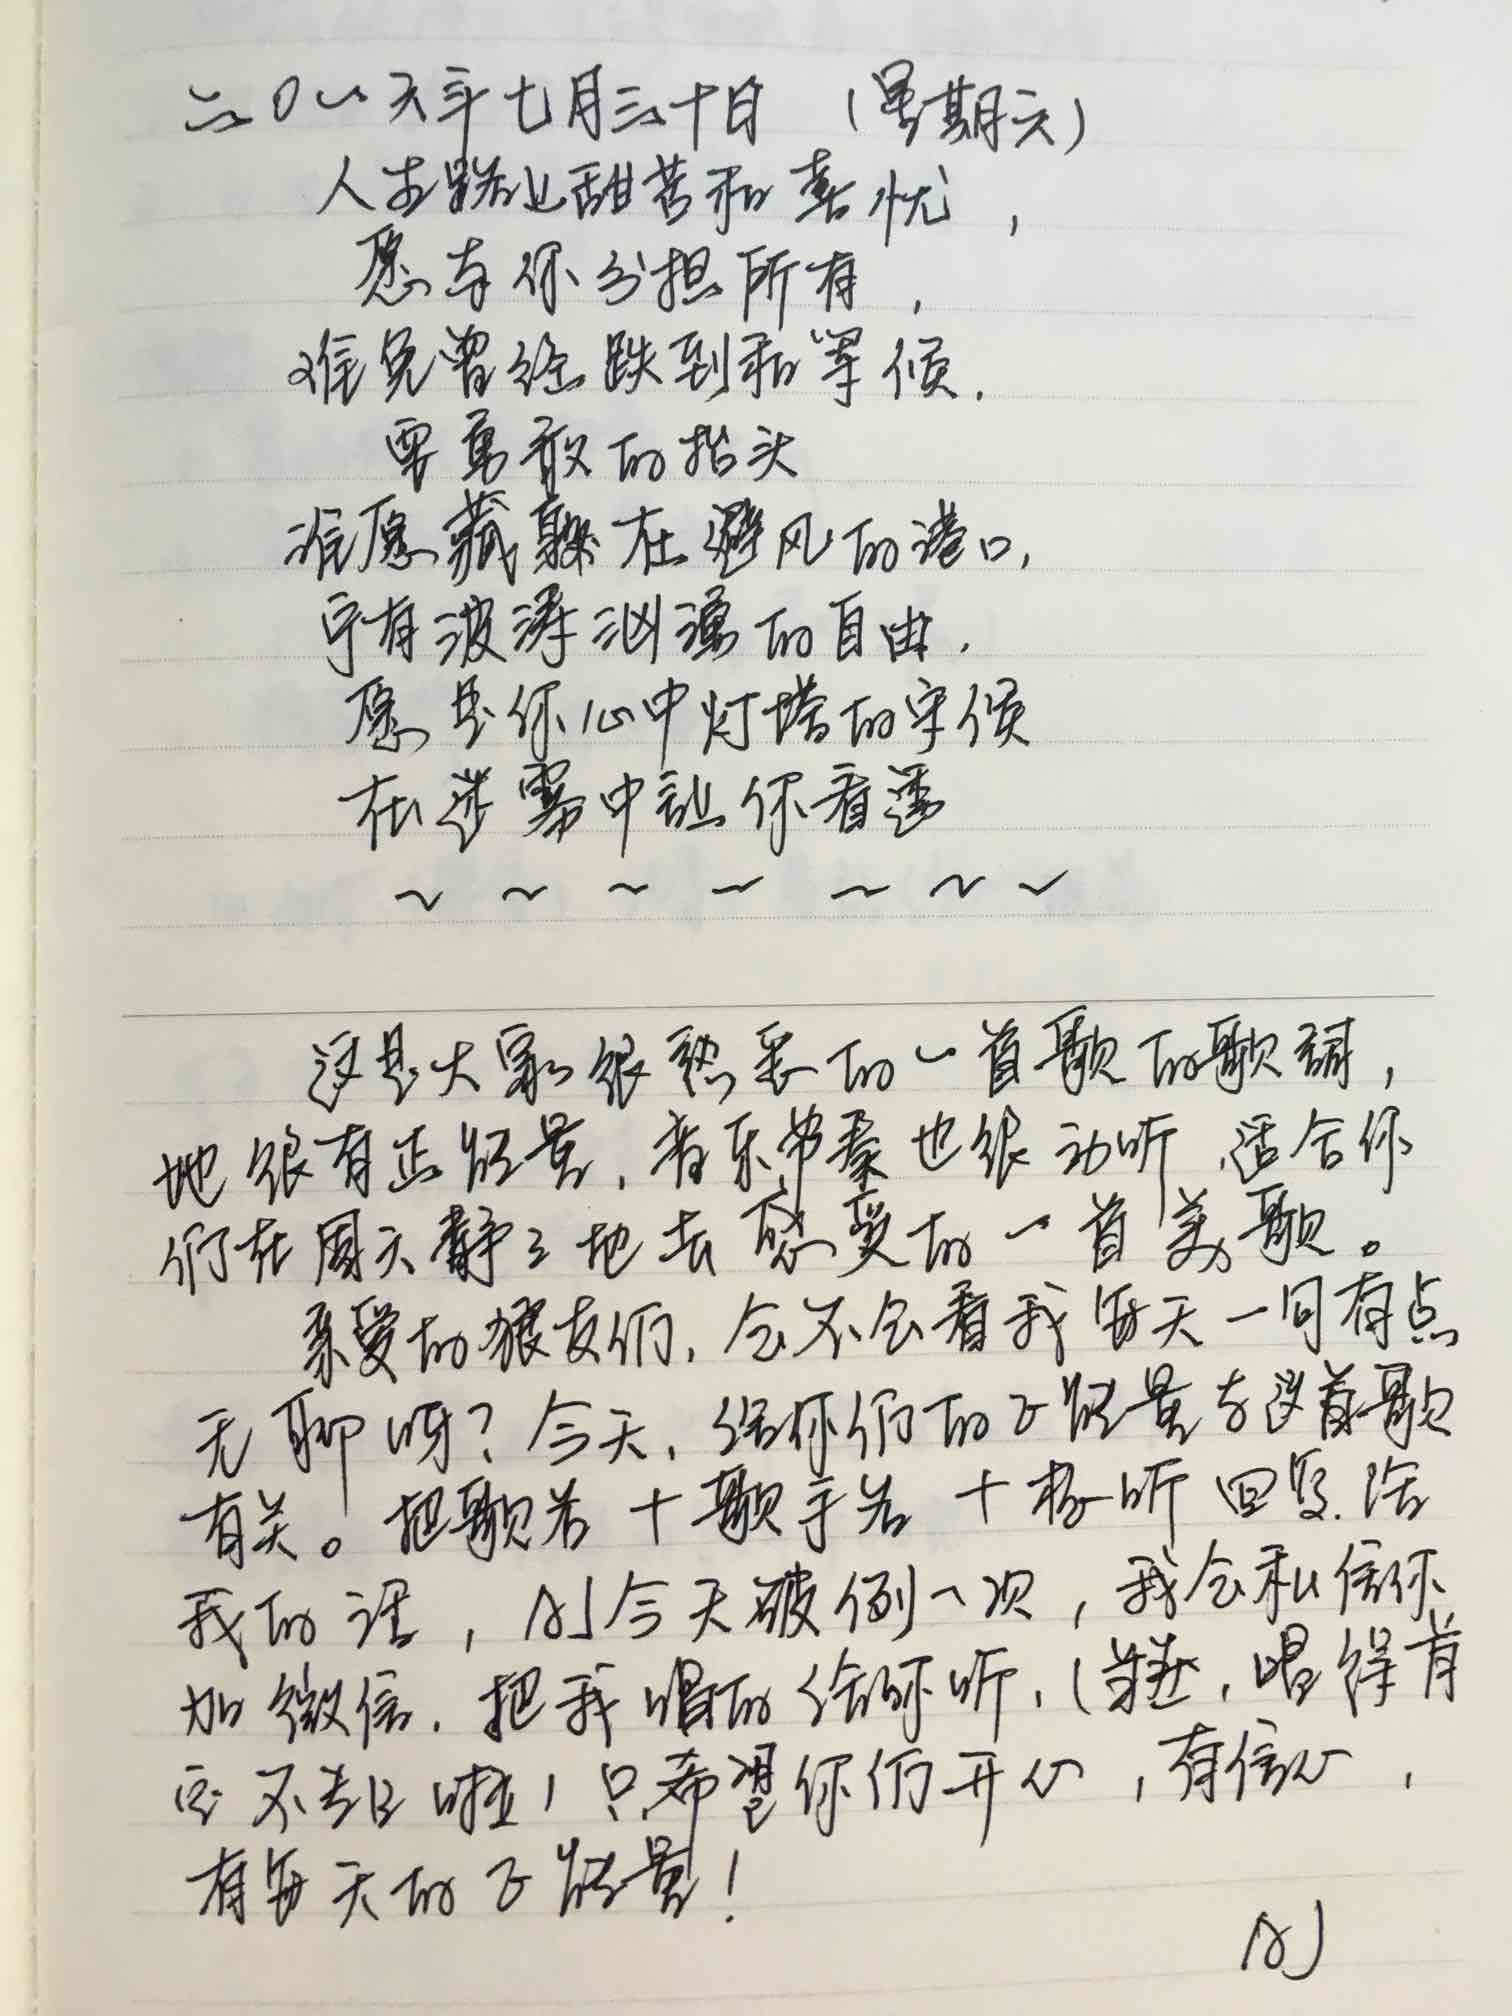 二〇一六年七月三十日 (星期六)
人生路上甜苦和喜忧，
愿与你分担所有，
难免曾经跌到和等候.
要勇敢的抬头
谁愿藏躲在避风的港口,
宁有波涛汹涌的自由.
愿是你心中灯塔的守候
在迷雾中让你看透
~ ~ ~ ~ ~ ~ ~
这是大家很熟悉的一首歌的歌词，
也很有正能量. 音乐节奏也很动听 .适合你
们在周六静々地去感受的一首美歌。
亲爱的狼友们, 会不会看我每天一问有点
无聊呀? 今天, 给你们的正能量与这首歌
有关。把歌名十歌手名十根听 回复给
我的话，AJ今天破例一次，我会私信你
加微信. 把我唱的给你听. (当然, 唱得肯
定不专业啦! 只希望你们开心，有信心，
有每天的正能量!
AJ